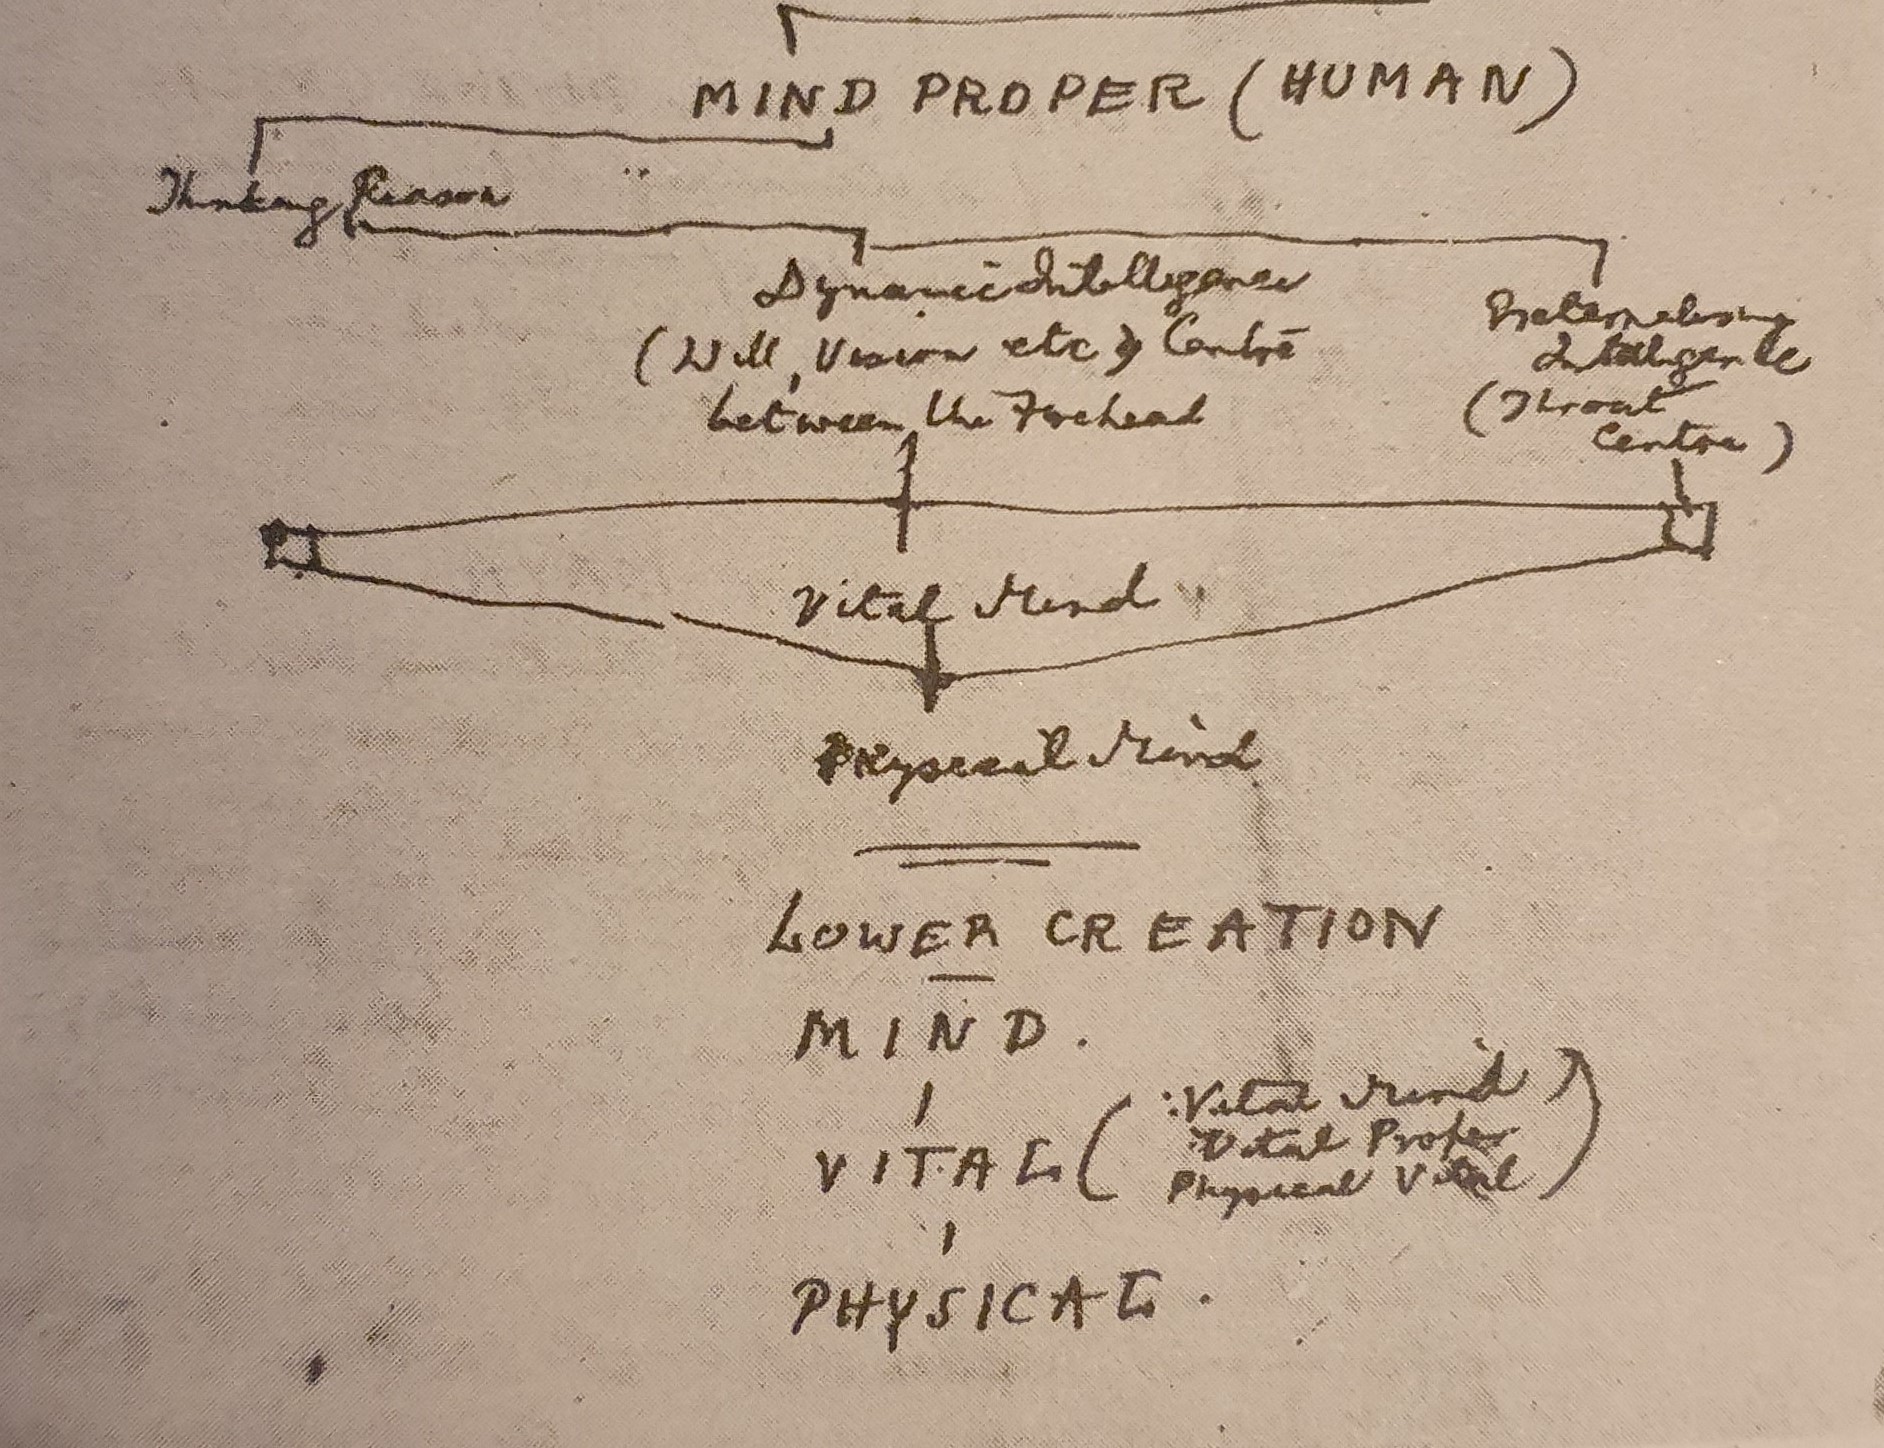 MIND PROPER (HUMAN)
Thinking Reason
Dynamic Intelligence
(Will, Vision etc) Centre
between the Forehead
Externalising
Intelligence
(Throat
Centre)
Vital Mind
Physical Mind
LOWER CREATION
MIND.
VITAL (Vital Mind
Vital Proper
Physical Vital)
PHYSICAL.